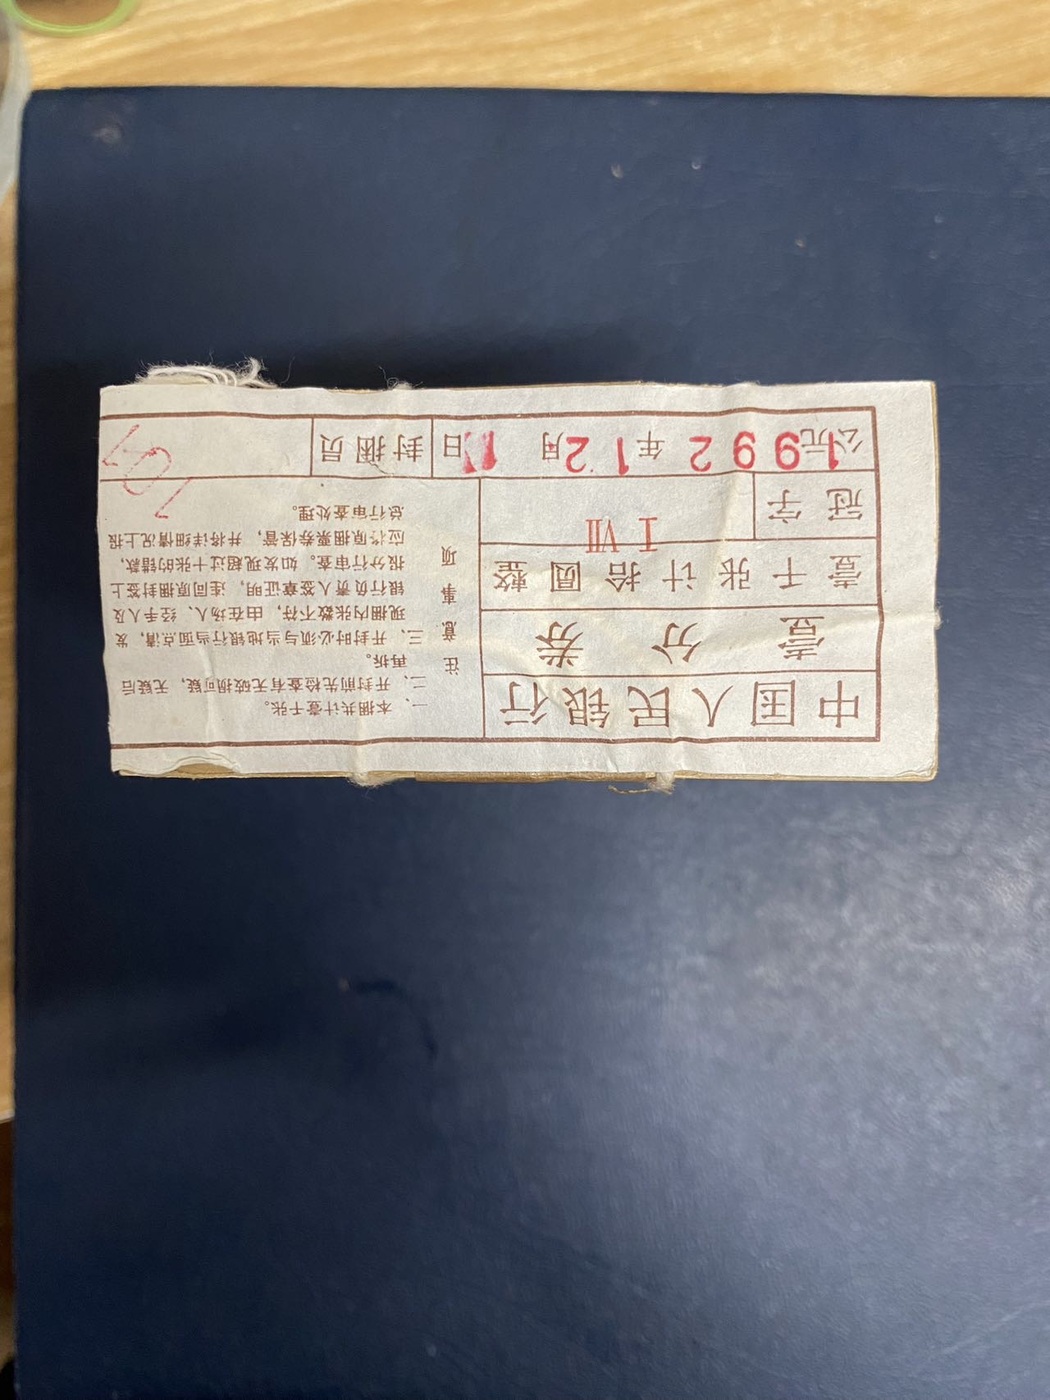 中国人民银行
壹分券
壹千张计拾圆整
冠字 I VII
公元1992年12月 日
封捆员
注意事项
一、本捆共计壹千张。
二、开封前先检查有无破损可疑，无疑后
再拆。
三、开封时必须与当地银行当面点清，发
现捆内张数不符，由在场人、经手人及
银行负责人签章证明，连同原捆封签上
报分行审查。如发现超过十张的错款，
应将原捆票券保管，并将详细情况上报
总行审查处理。